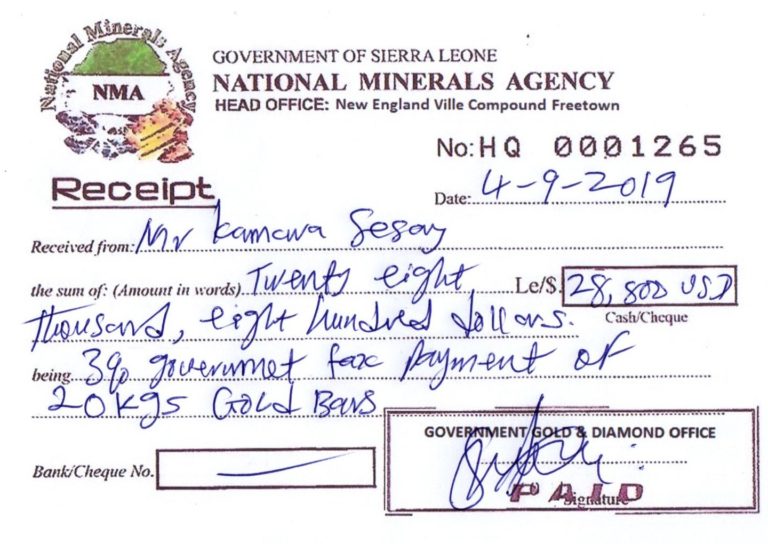 National Minerals Agency
NMA
GOVERNMENT OF SIERRA LEONE
NATIONAL MINERALS AGENCY
HEAD OFFICE: New England Ville Compound Freetown
No: HQ 0001265
Receipt
Date: 4-9-2019
Received from: Mr Kamara Sesay
the sum of: (Amount in words) Twenty eight Le/$. 28,800 USD
thousand, eight hundred dollars. Cash/Cheque
being 3% governmet tax payment of
20 kgs Gold Bars
GOVERNMENT GOLD & DIAMOND OFFICE
Bank/Cheque No.
PAID
Signature